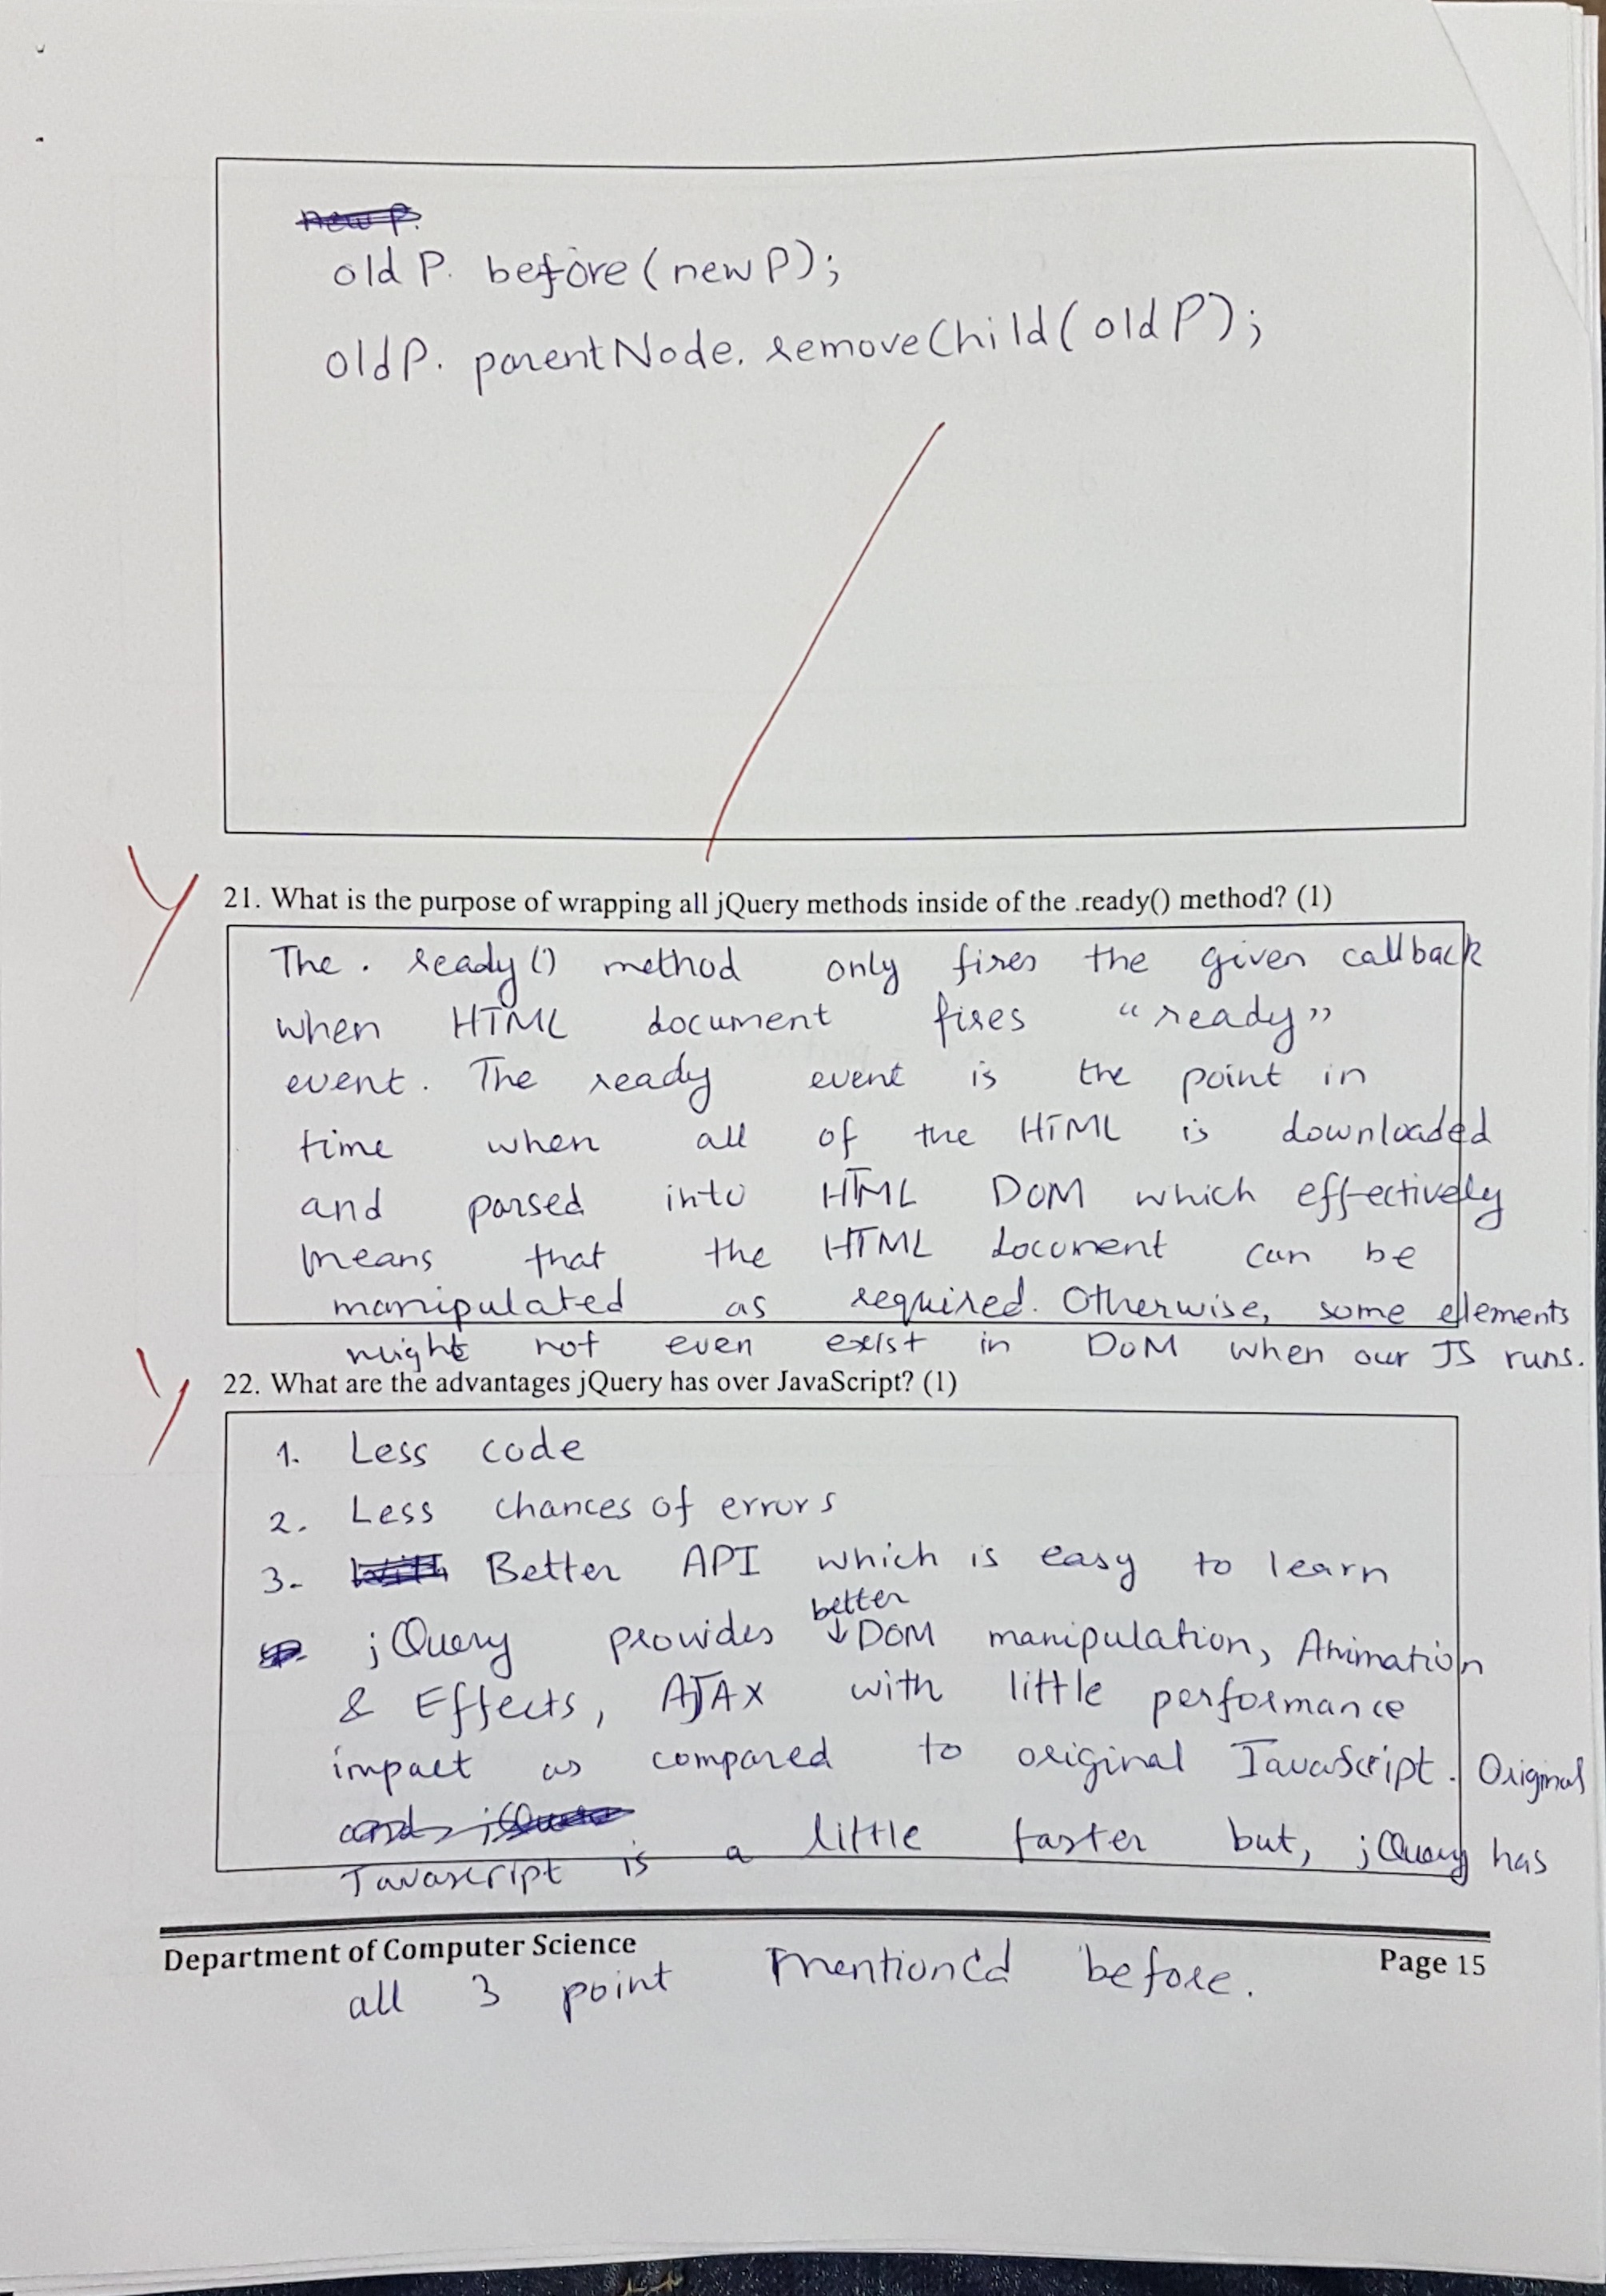 newP.
oldP. before(newP);
oldP. parentNode. removeChild(oldP);
21. What is the purpose of wrapping all jQuery methods inside of the .ready() method? (1)
The . ready() method only fires the given callback
when HTML document fires "ready"
event. The ready event is the point in
time when all of the HTML is downloaded
and parsed into HTML DOM which effectively
means that the HTML document can be
manipulated as required. Otherwise, some elements
might not even exist in DOM when our JS runs.
22. What are the advantages jQuery has over JavaScript? (1)
1. Less code
2. Less chances of errors
3- Better API which is easy to learn
better
jQuery provides ↓DOM manipulation, Animation
& Effects, AJAX with little performance
impact as compared to original JavaScript. Original
Javascript is a little faster but, jQuery has
Department of Computer Science
Page 15
all 3 point mentioned before.